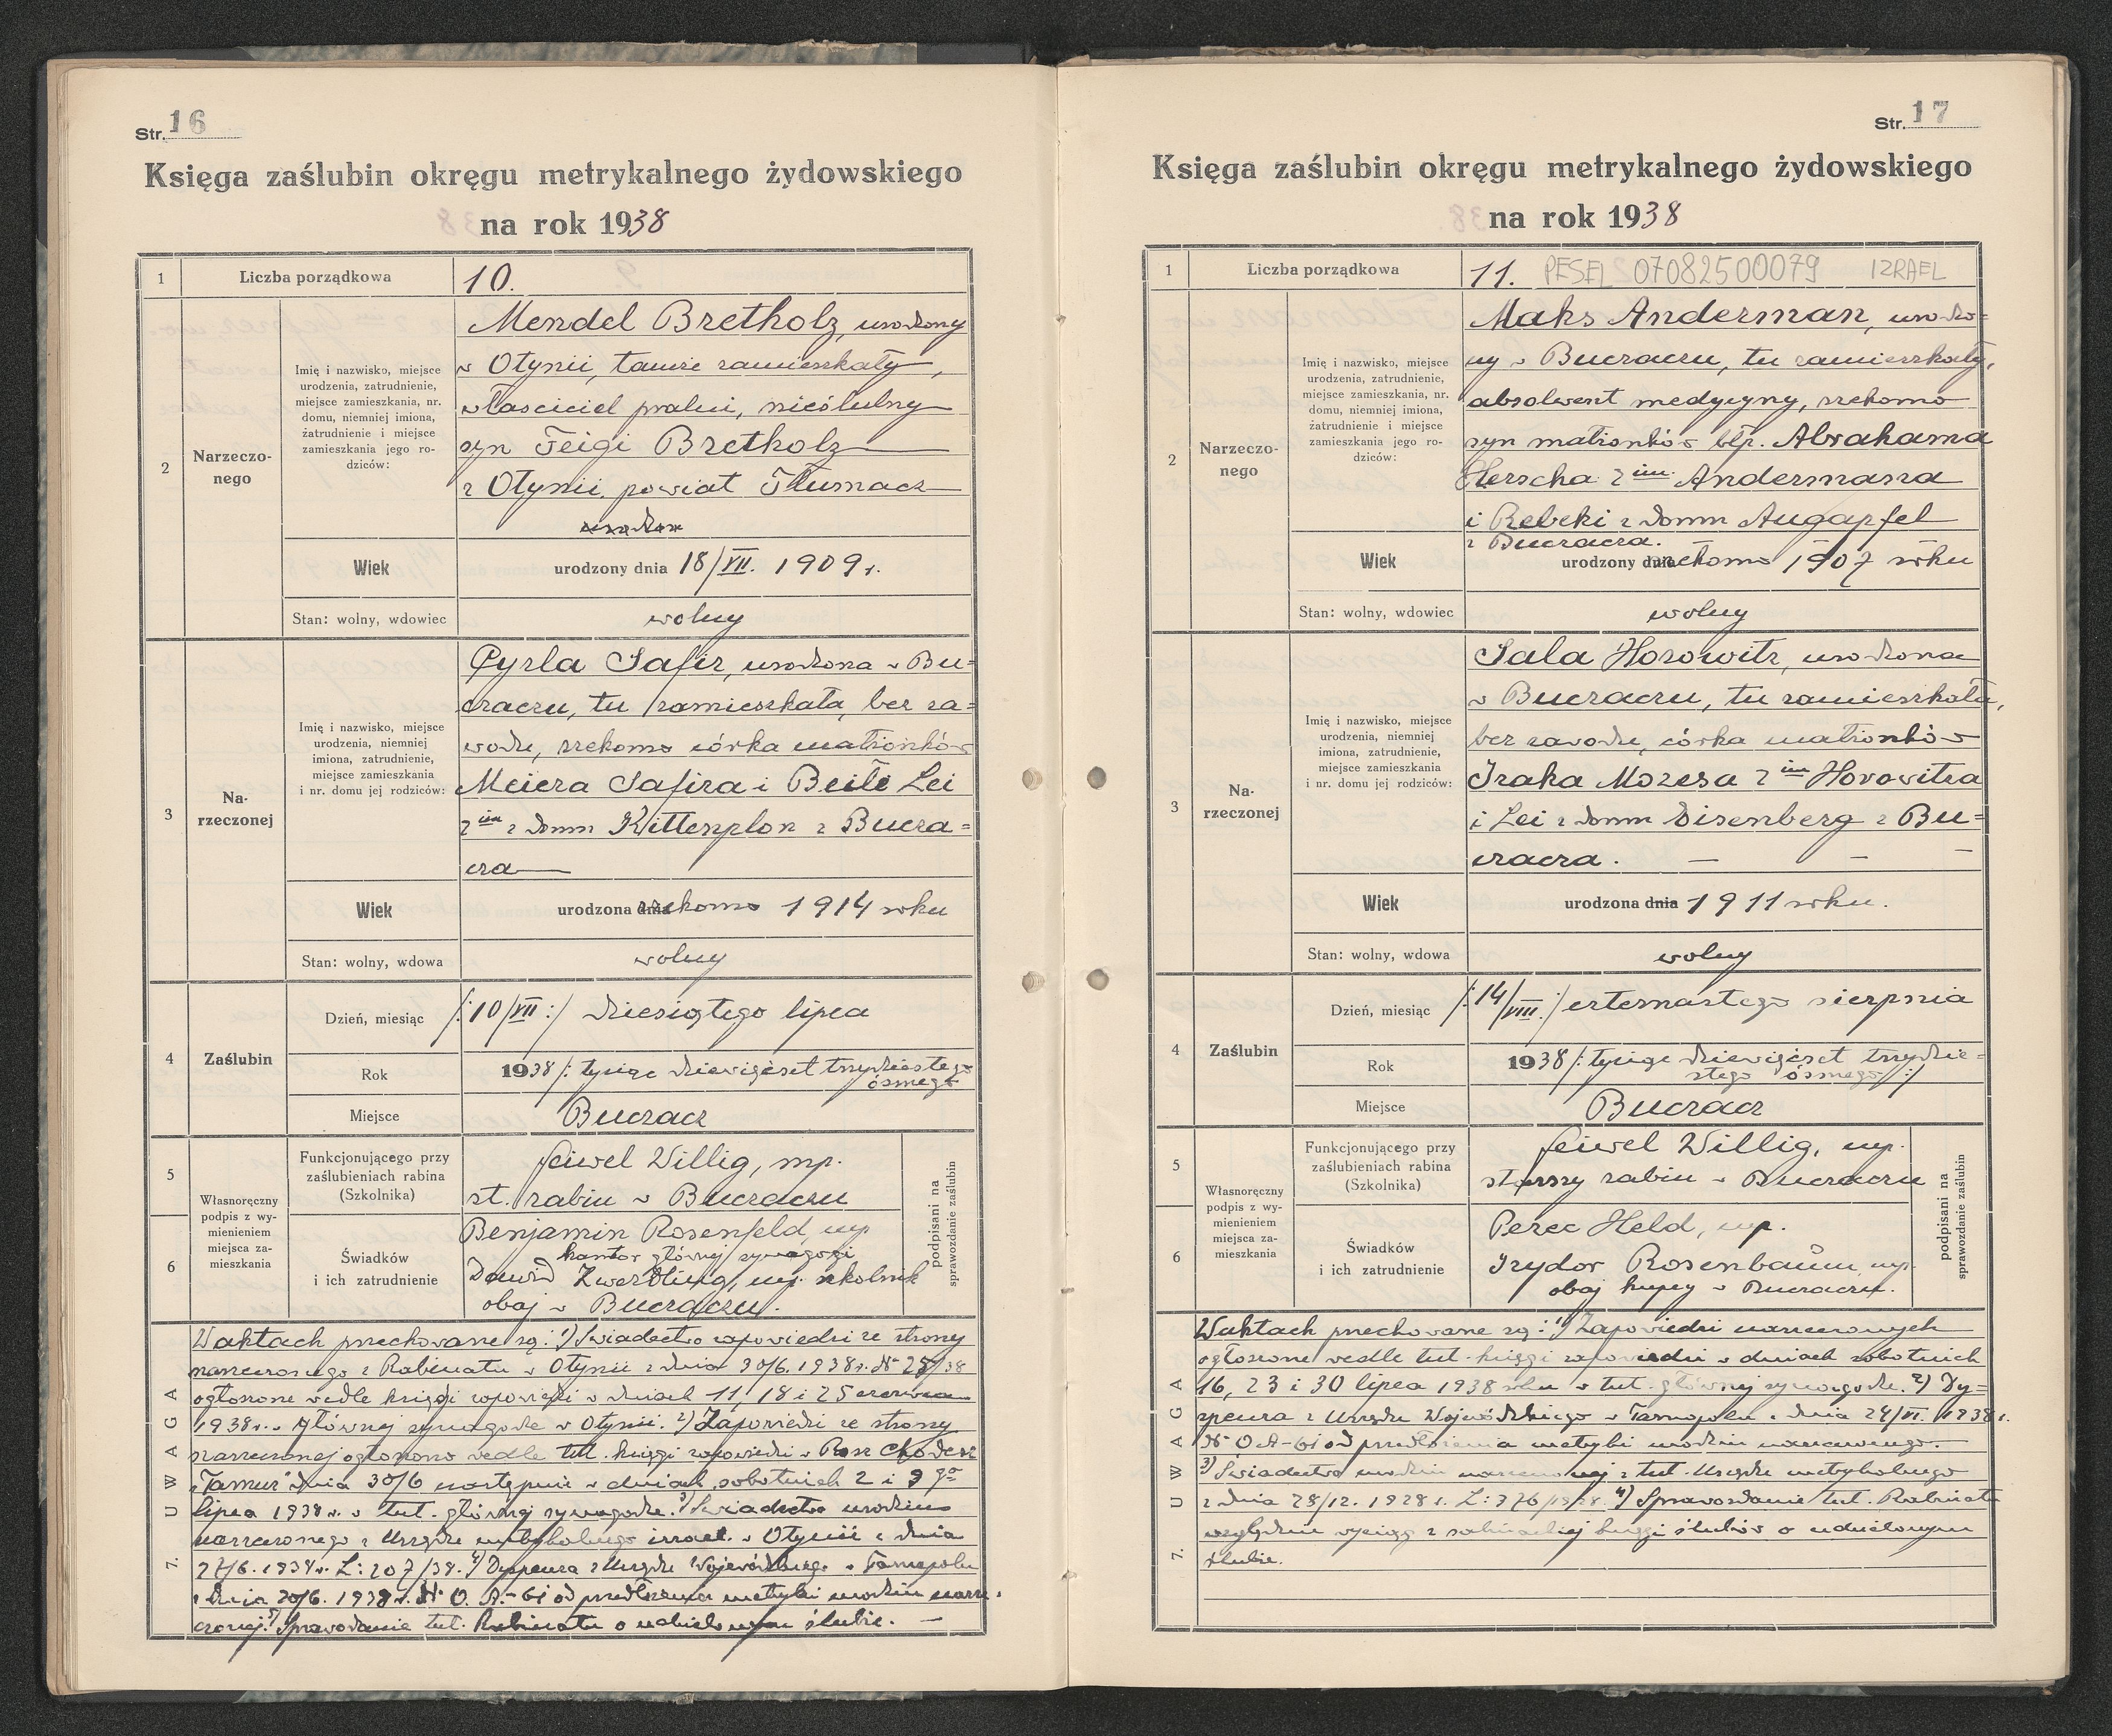 Str. 16
Księga zaślubin okręgu metrykalnego żydowskiego
na rok 1938
1
Liczba porządkowa
10.
2
Narzeczo-
nego
Imię i nazwisko, miejsce
urodzenia, zatrudnienie,
miejsce zamieszkania, nr.
domu, niemniej imiona,
zatrudnienie i miejsce
zamieszkania jego ro-
dziców:
Mendel Bretholz, urodzony
w Otynii, tamże zamieszkały,
właściciel pralni, nieślubny
syn Feigi Bretholz
z Otynii powiat Tłumacz
Wiek
urodzony dnia 18/VII. 1909 r.
Stan: wolny, wdowiec
wolny
3
Na-
rzeczonej
Imię i nazwisko, miejsce
urodzenia, niemniej
imiona, zatrudnienie,
miejsce zamieszkania
i nr. domu jej rodziców:
Cyrla Safir, urodzona w Bu=
czaczu, tu zamieszkała, bez za=
wodu, rzekomo córka małżonków
Meiera Safira i Beile Lei
2 im z domu Kittenplon z Bucza=
cza
Wiek
urodzona dnia rzekomo 1914 roku
Stan: wolny, wdowa
wolny
4
Zaślubin
Dzień, miesiąc
/:10/VII:/ dziesiątego lipca
Rok
1938 /: tysiąc dziewięćset trzydziestego
ósmego
Miejsce
Buczacz
5
6
Własnoręczny
podpis z wy-
mienieniem
miejsca za-
mieszkania
Funkcjonującego przy
zaślubieniach rabina
(Szkolnika)
Feiwel Willig, mp.
st. rabin w Buczaczu
Świadków
i ich zatrudnienie
Benjamin Rosenfeld, mp
kantor głównej synagogi
Dawid Zwerdling, mp. szkolnik
obaj w Buczaczu.
podpisani na
sprawozdanie zaślubin
7. UWAGA
W aktach przechowane są: 1) Świadectwo zapowiedzi ze strony
narzeczonego z Rabinatu w Otynii z dnia 30/6. 1938 r. № 28/38
ogłoszone wedle księgi zapowiedzi w dniach 11, 18 i 25 czerwca
1938 r. w głównej synagodze w Otynii. 2) Zapowiedzi ze strony
narzeczonej ogłoszono wedle tut. księgi zapowiedzi w Rosz Chodesz
"Tamuz" dnia 30/6 następnie w dniach sobotnich 2 i 9 go
lipca 1938 r. w tut. głównej synagodze. 3) Świadectwo urodzin
narzeczonego z Urzędu metrykalnego izrael. w Otynii z dnia
27/6. 1938 r. L: 207/38. 4) Dyspensa z Urzędu Wojewódzkiego w Tarnopolu
z dnia 30/6. 1938 r. № O. A.-61 od przedłożenia metryki urodzin narze-
czonej. 5) Sprawozdanie tut. Rabinatu o udzielonym ślubie. —
Str. 17
Księga zaślubin okręgu metrykalnego żydowskiego
na rok 1938
1
Liczba porządkowa
11. PESEL 07082500079 IZRAEL
2
Narzeczo-
nego
Imię i nazwisko, miejsce
urodzenia, zatrudnienie,
miejsce zamieszkania, nr.
domu, niemniej imiona,
zatrudnienie i miejsce
zamieszkania jego ro-
dziców:
Maks Anderman, urodzo=
ny w Buczaczu, tu zamieszkały,
absolwent medycyny, rzekomo
syn małżonków błp. Abrahama
Herscha 2 im. Andermana
i Rebeki z domu Augapfel
z Buczacza.
Wiek
urodzony dnia rzekomo 1907 roku
Stan: wolny, wdowiec
wolny
3
Na-
rzeczonej
Imię i nazwisko, miejsce
urodzenia, niemniej
imiona, zatrudnienie,
miejsce zamieszkania
i nr. domu jej rodziców:
Sala Horowitz, urodzona
w Buczaczu, tu zamieszkała,
bez zawodu, córka małżonków
Izaka Mozesa 2 im Horowitza
i Lei z domu Eisenberg z Bu=
czacza. — — —
Wiek
urodzona dnia 1911 roku.
Stan: wolny, wdowa
wolny
4
Zaślubin
Dzień, miesiąc
/:14/VIII:/ czternastego sierpnia
Rok
1938 /: tysiąc dziewięćset trzydzie=
stego ósmego :/
Miejsce
Buczacz
5
6
Własnoręczny
podpis z wy-
mienieniem
miejsca za-
mieszkania
Funkcjonującego przy
zaślubieniach rabina
(Szkolnika)
Feiwel Willig, mp.
starszy rabin w Buczaczu
Świadków
i ich zatrudnienie
Perec Held, mp.
Izydor Rosenbaum mp.
obaj kupcy w Buczaczu.
podpisani na
sprawozdanie zaślubin
7. UWAGA
W aktach przechowane są: 1) Zapowiedzi narzeczonych
ogłoszone wedle tut. księgi zapowiedzi w dniach sobotnich
16, 23 i 30 lipca 1938 roku w tut. głównej synagodze. 2) Dy=
spensa z Urzędu Wojewódzkiego w Tarnopolu z dnia 24/VI. 1938 r.
№ OA-61 od przedłożenia metryki urodzin narzeczonego.
3) Świadectwo urodzin narzeczonej z tut. Urzędu metrykalnego
z dnia 28/12. 1928 r. L: 376/1928. 4) Sprawozdanie tut. Rabinatu
względnie wyciąg z rabinackiej księgi ślubów o udzielonym
ślubie.